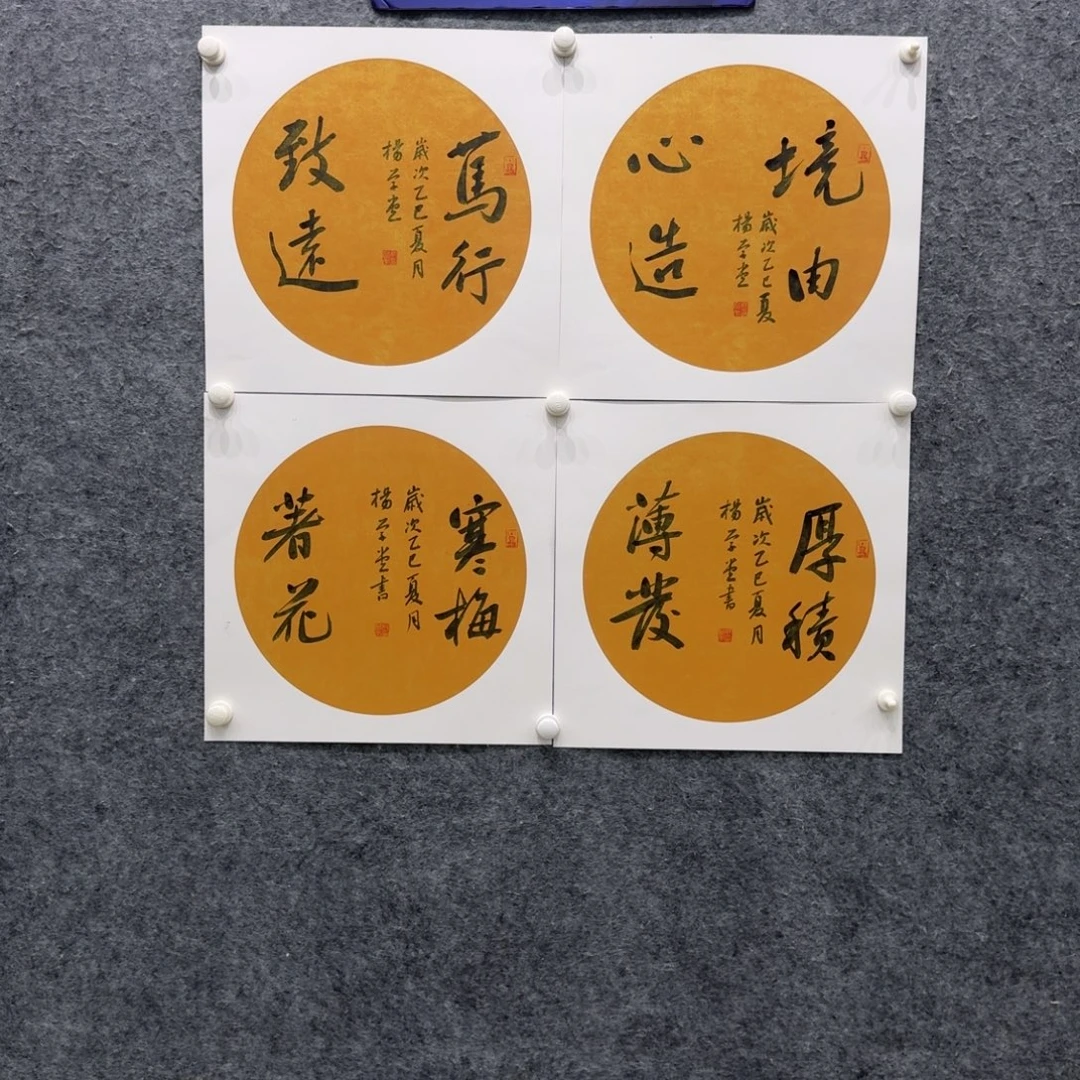 篤行
致遠
歲次乙巳夏月
楊學堂
境由
心造
歲次乙巳夏
楊學堂
寒梅
著花
歲次乙巳夏月
楊學堂書
厚積
薄發
歲次乙巳夏月
楊學堂書